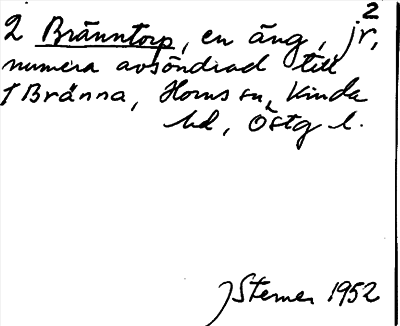 2
2 Bränntorp, en äng, jr,
numera avsöndrad till
1 Bränna, Horns sn, Kinda
hd, Östg l.
J Sterner 1952